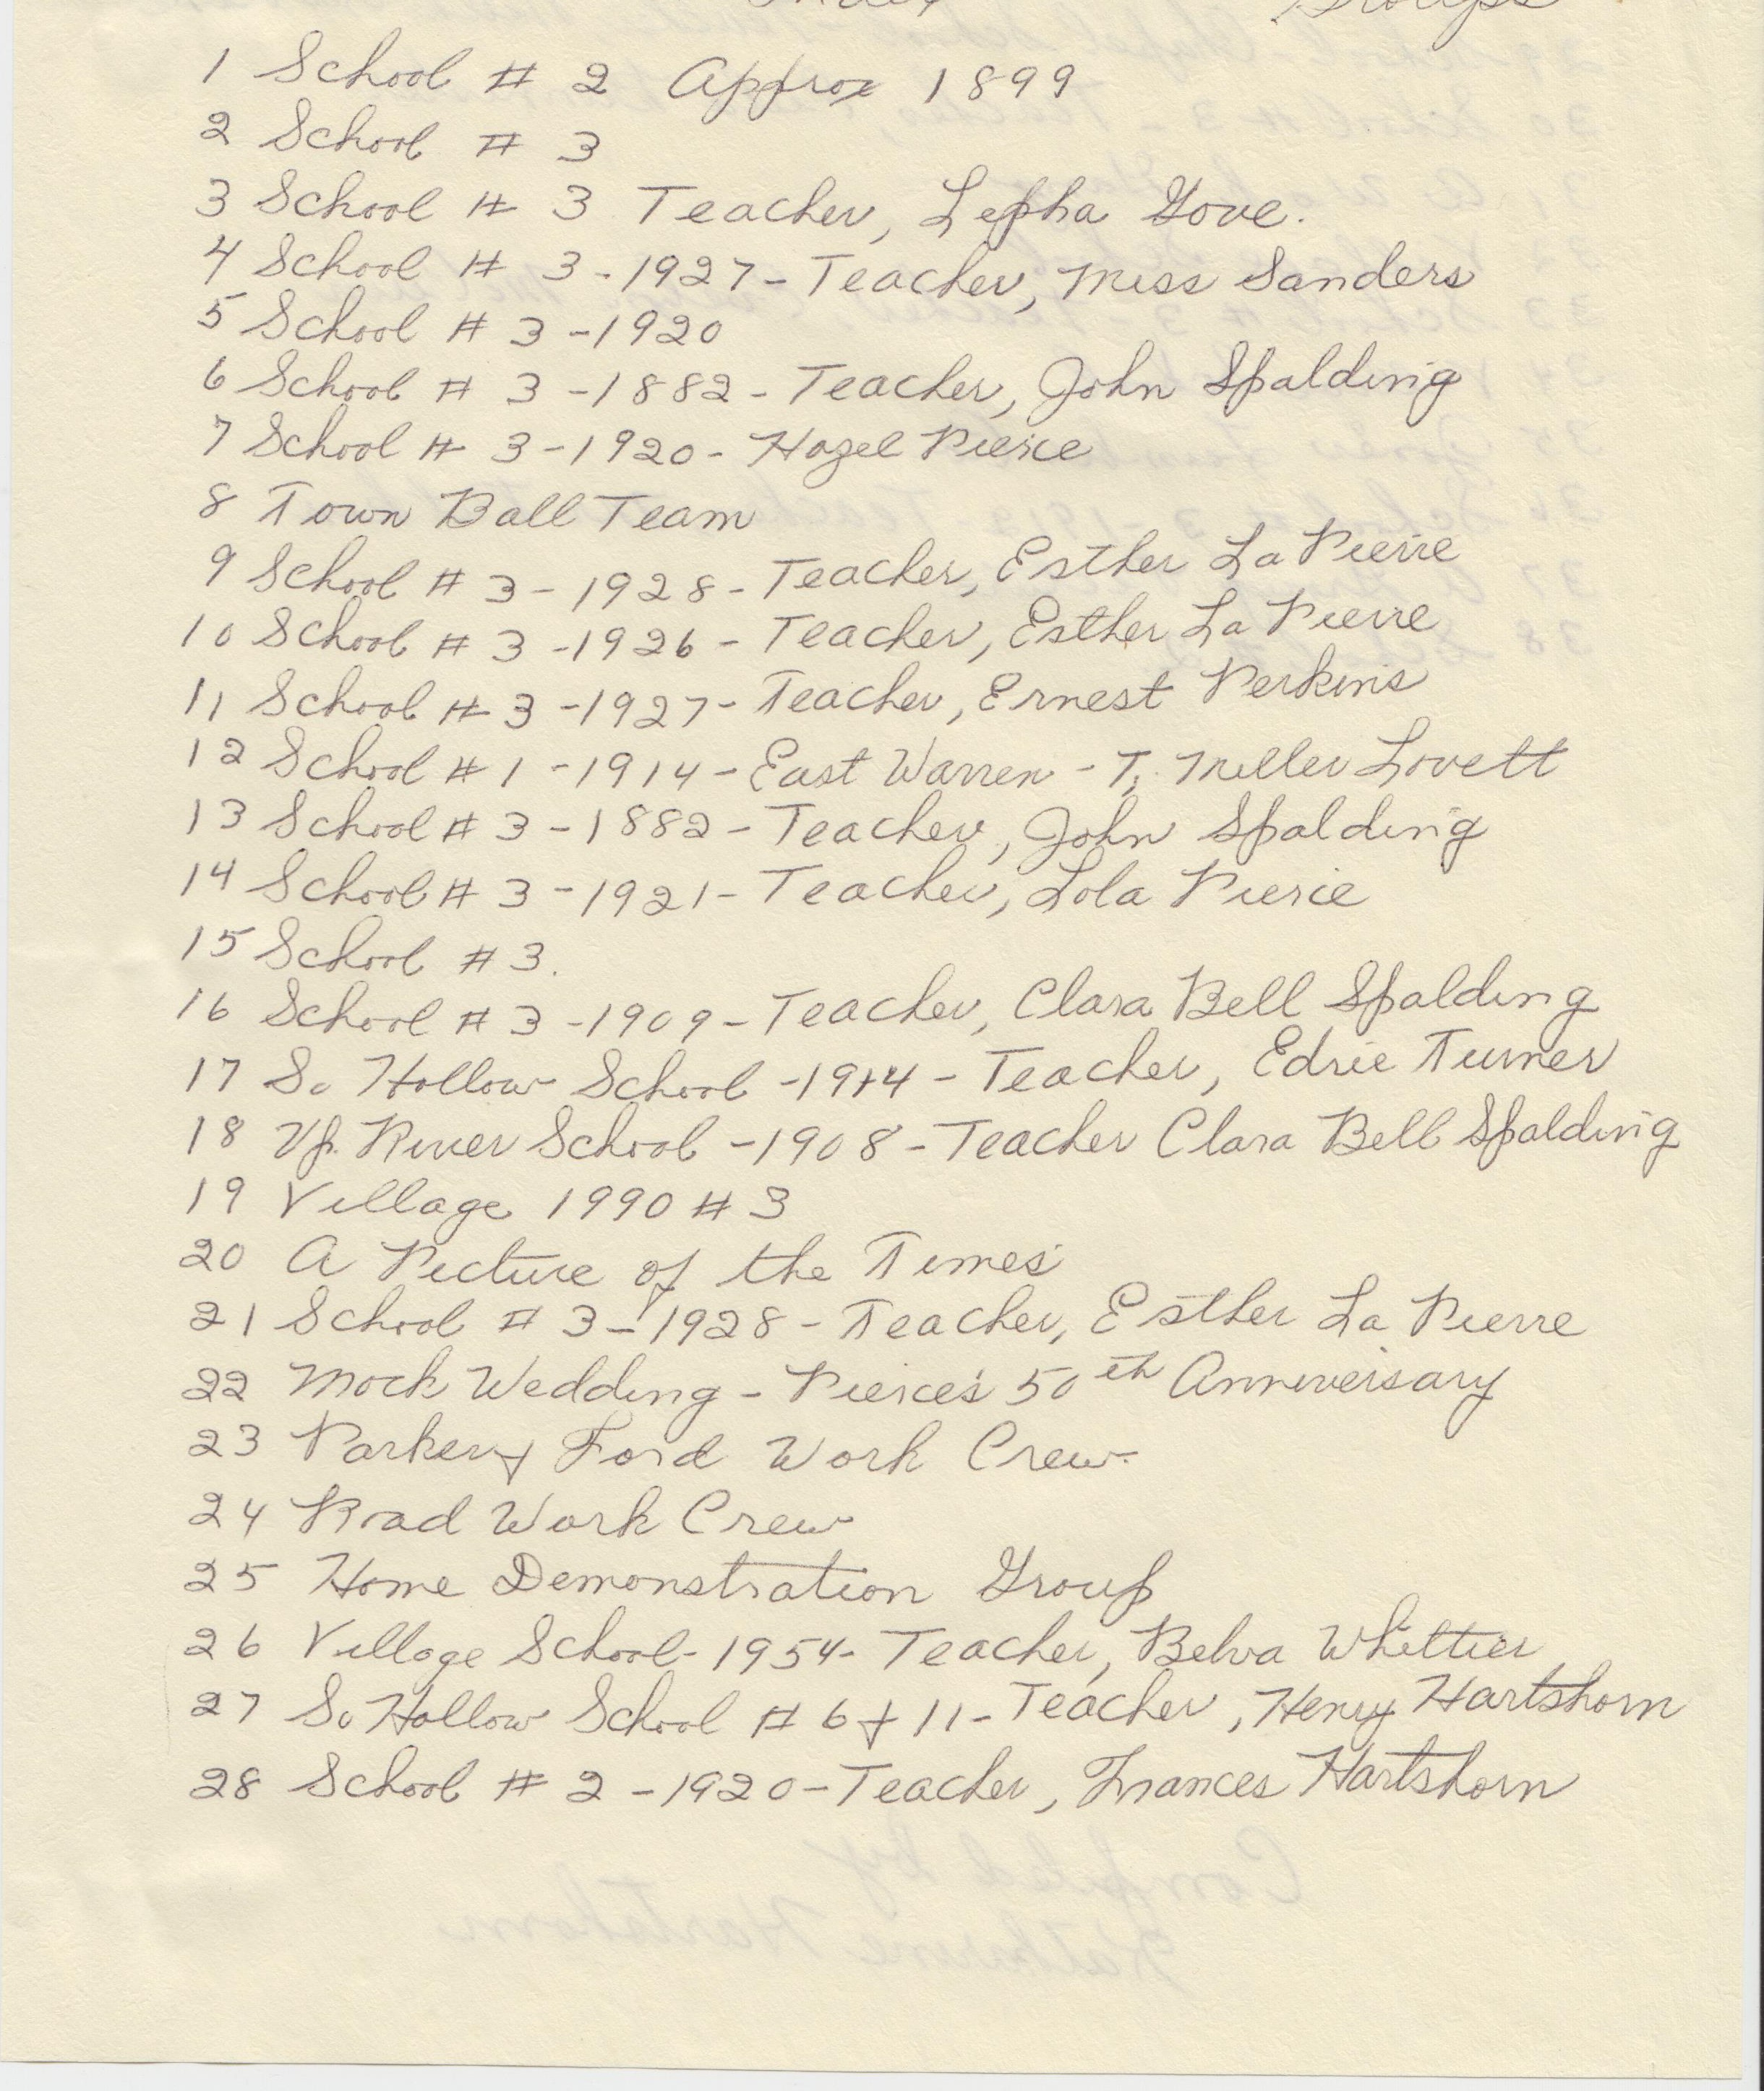 Index Groups
1 School # 2 Approx 1899
2 School # 3
3 School # 3 Teacher, Lepha Gove.
4 School # 3 - 1927 - Teacher, Miss Sanders
5 School # 3 - 1920
6 School # 3 - 1882 - Teacher, John Spalding
7 School # 3 - 1920 - Hazel Pierce
8 Town Ball Team
9 School # 3 - 1928 - Teacher, Esther La Pierre
10 School # 3 - 1926 - Teacher, Esther La Pierre
11 School # 3 - 1927 - Teacher, Ernest Perkins
12 School # 1 - 1914 - East Warren - T. Miller Lovett
13 School # 3 - 1882 - Teacher, John Spalding
14 School # 3 - 1921 - Teacher, Lola Pierce
15 School # 3.
16 School # 3 - 1909 - Teacher, Clara Bell Spalding
17 So Hollow School - 1914 - Teacher, Edrie Turner
18 Up River School - 1908 - Teacher Clara Bell Spalding
19 Village 1990 # 3
20 A Picture of the Times
21 School # 3 - 1928 - Teacher, Esther La Pierre
22 Mock Wedding - Pierce's 50th Anniversary
23 Parker & Ford Work Crew
24 Road Work Crew
25 Home Demonstration Group
26 Village School - 1954 - Teacher, Belva Whittier
27 So Hollow School # 6 & 11 - Teacher, Henry Hartshorn
28 School # 2 - 1920 - Teacher, Frances Hartshorn